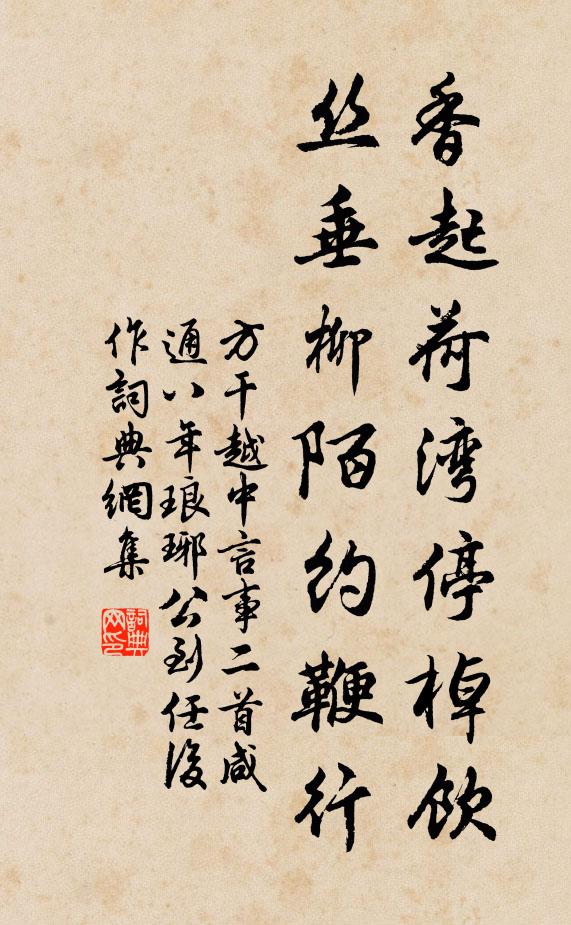 香起荷湾停棹饮
丝垂柳陌约鞭行
方干越中言事二首咸
通八年琅琊公到任後
作詞典網集
詞典網印